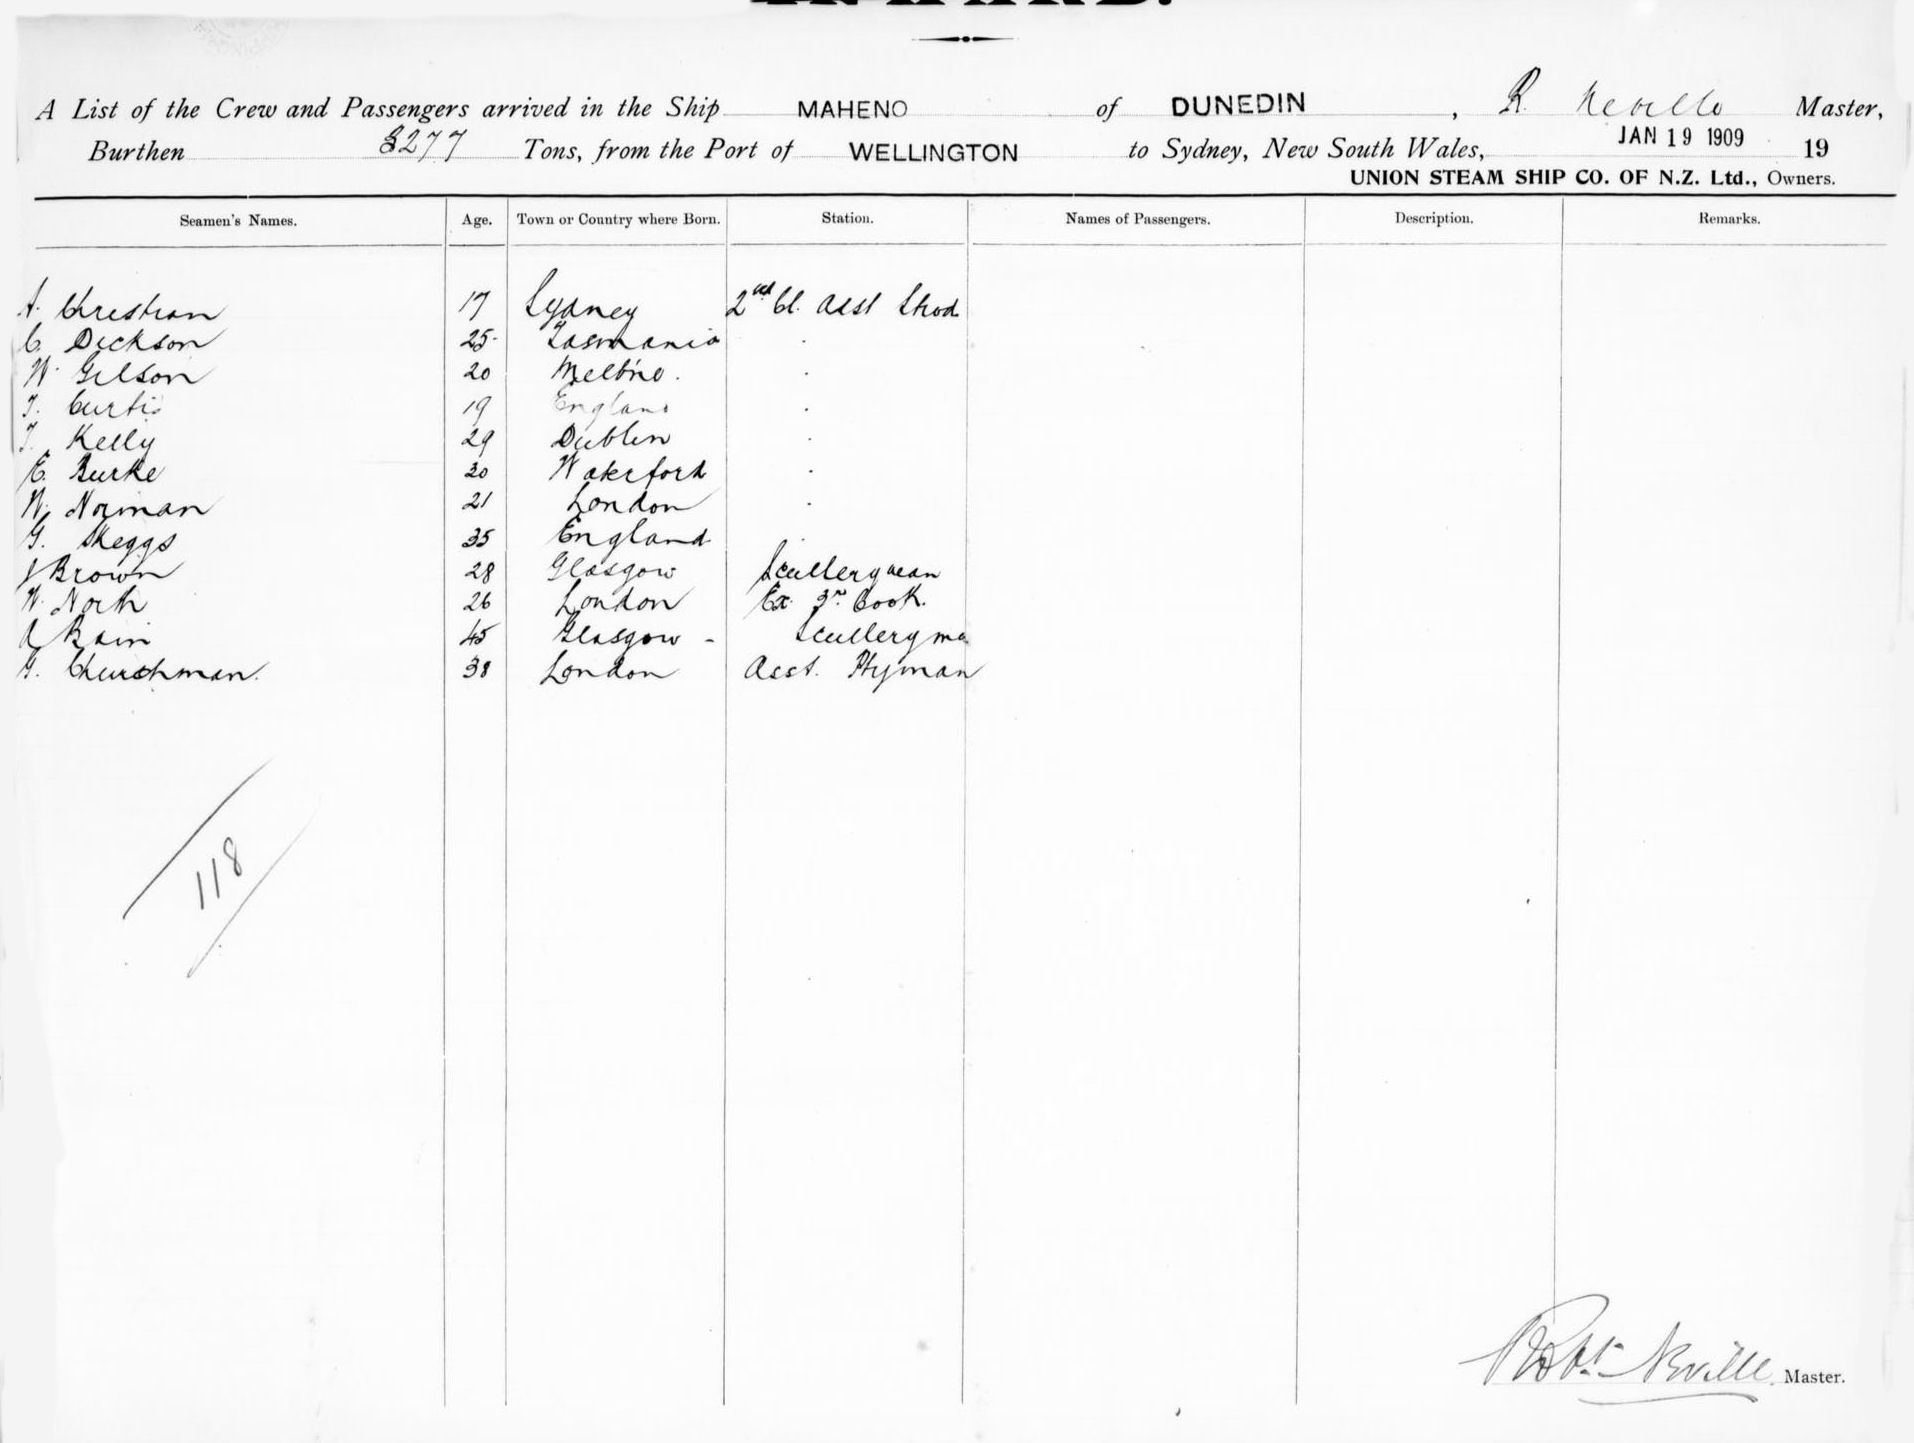 INWARD.
A List of the Crew and Passengers arrived in the Ship MAHENO of DUNEDIN, R. Neville Master,
Burthen 3277 Tons, from the Port of WELLINGTON to Sydney, New South Wales, JAN 19 1909 19
UNION STEAM SHIP CO. OF N.Z. Ltd., Owners.
Seamen's Names. Age. Town or Country where Born. Station. Names of Passengers. Description. Remarks.
A. Christian 17 Sydney 2nd Cl. Asst Stwd
C. Dickson 25 Tasmania
W. Gilson 20 Melb'ne.
T. Curtis 19 England
T. Kelly 29 Dublin
E. Burke 20 Waterford
W. Norman 21 London
G. Skeggs 35 England
J Brown 28 Glasgow Sculleryman
W. North 26 London Ex. 3rd Cook.
A Bain 45 Glasgow - Sculleryma
G. Churchman. 38 London Asst. Ptyman
118
Robt. Neville Master.